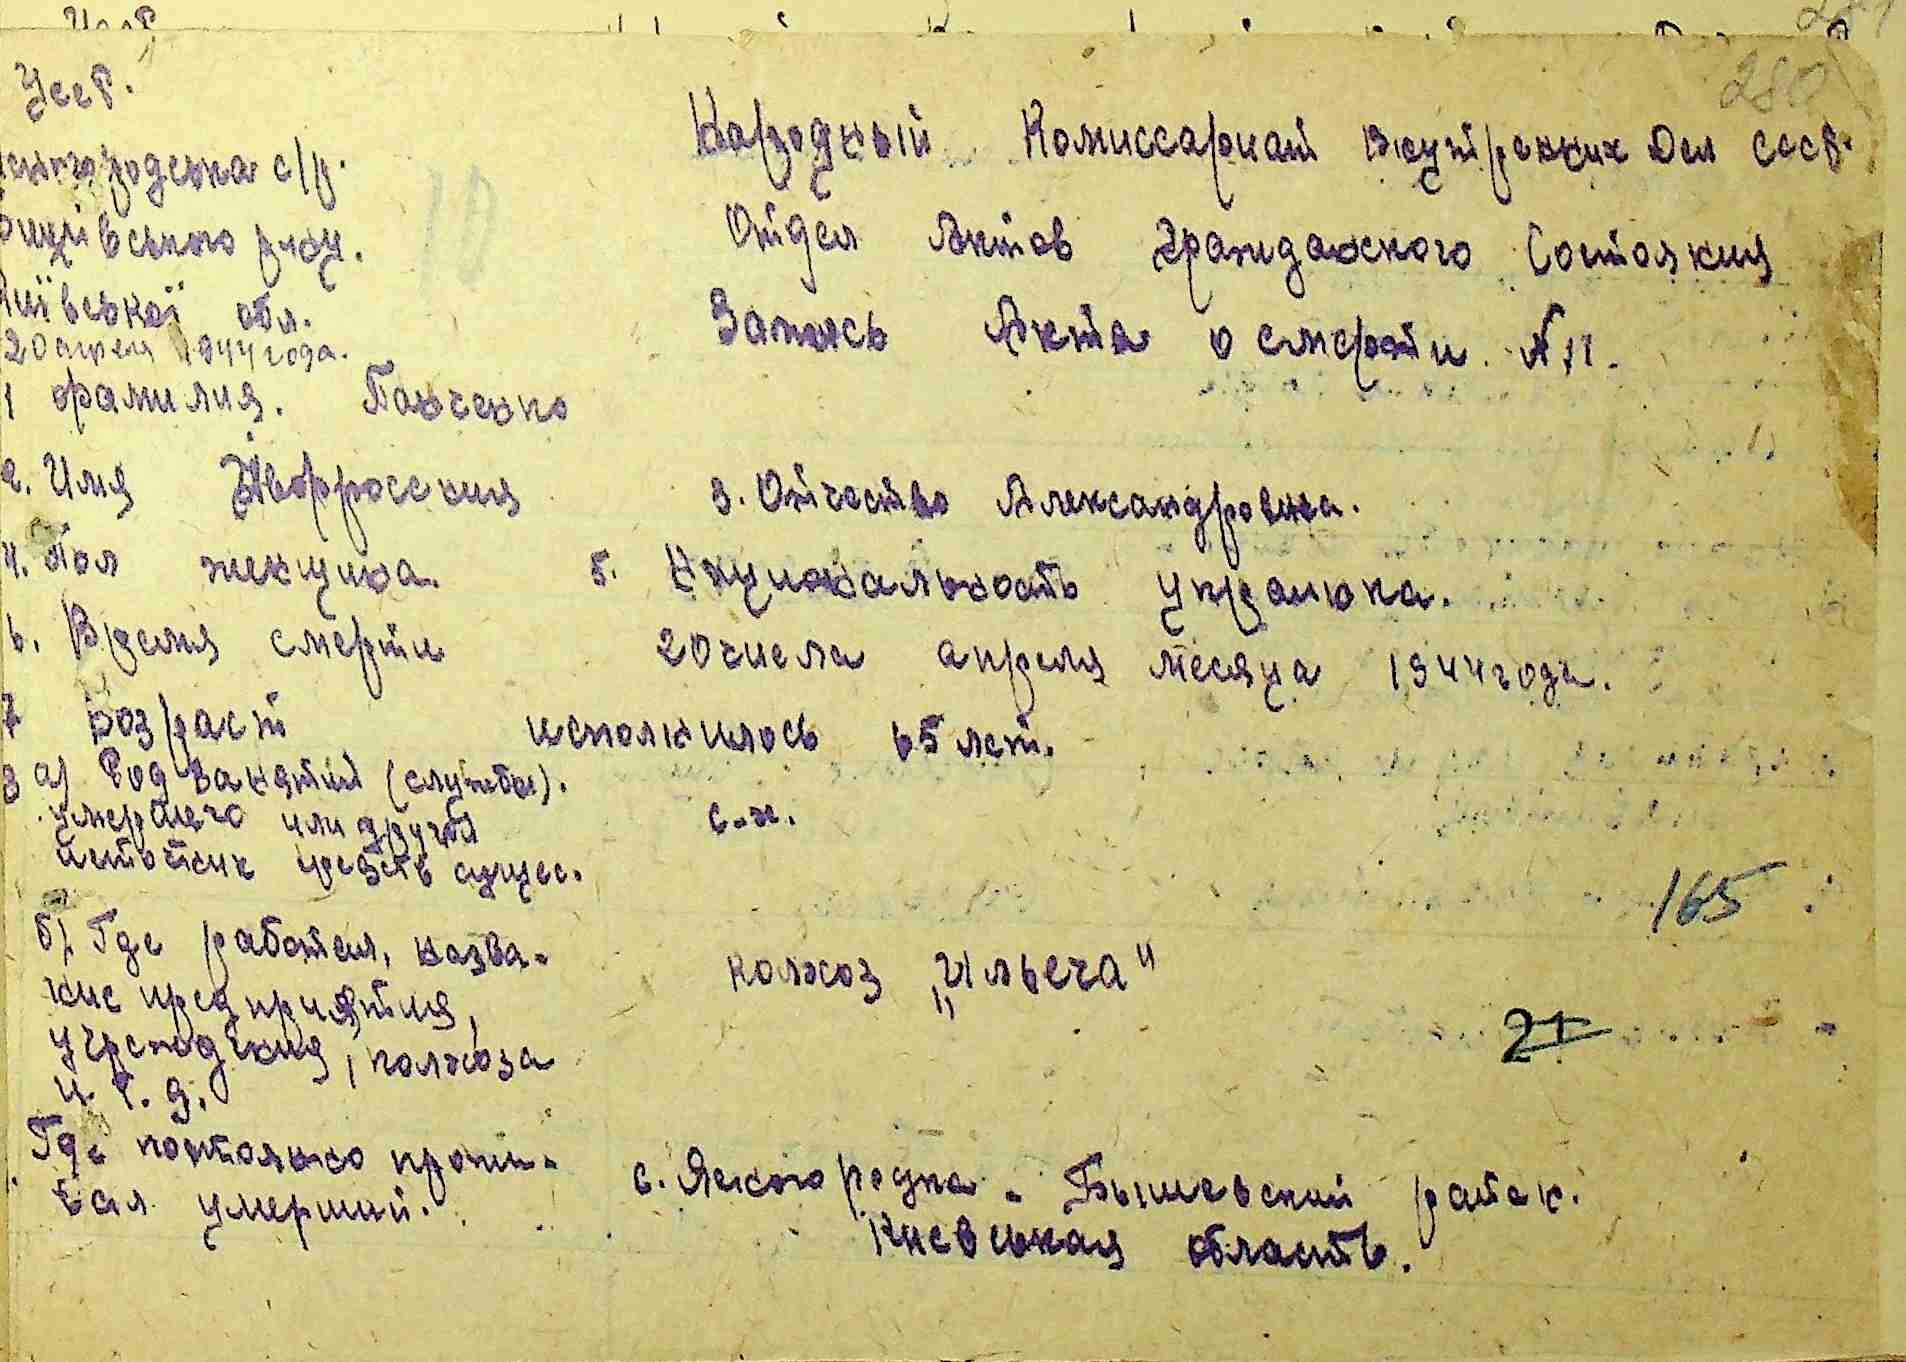 280
УССР.
Народный Комиссариат Внутренних Дел СССР.
Ясногородська с/р.
Бишівського р-ну.
Київської обл.
20 апреля 1944 года.
Отдел Актов Гражданского Состояния
Запись Акта о смерти № 11.
1 Фамилия. Панченко
2. Имя 3. Отчество Александровна.
4. Пол женщина. 5. Национальность украинка.
6. Время смерти 20 числа апреля месяца 1944 года.
7 Возраст исполнилось 65 лет.
8 а) Род занятий (службы).
умершего или другой с-х.
источник средств сущес.
165
б) Где работал, назва-
ние предприятия, колхоз „Ильеча"
учреждения, колхоза
и т. д.
21
Где постоянно прожи-
вал умерший. с. Ясногородка - Бышевский район.
Киевськая область.